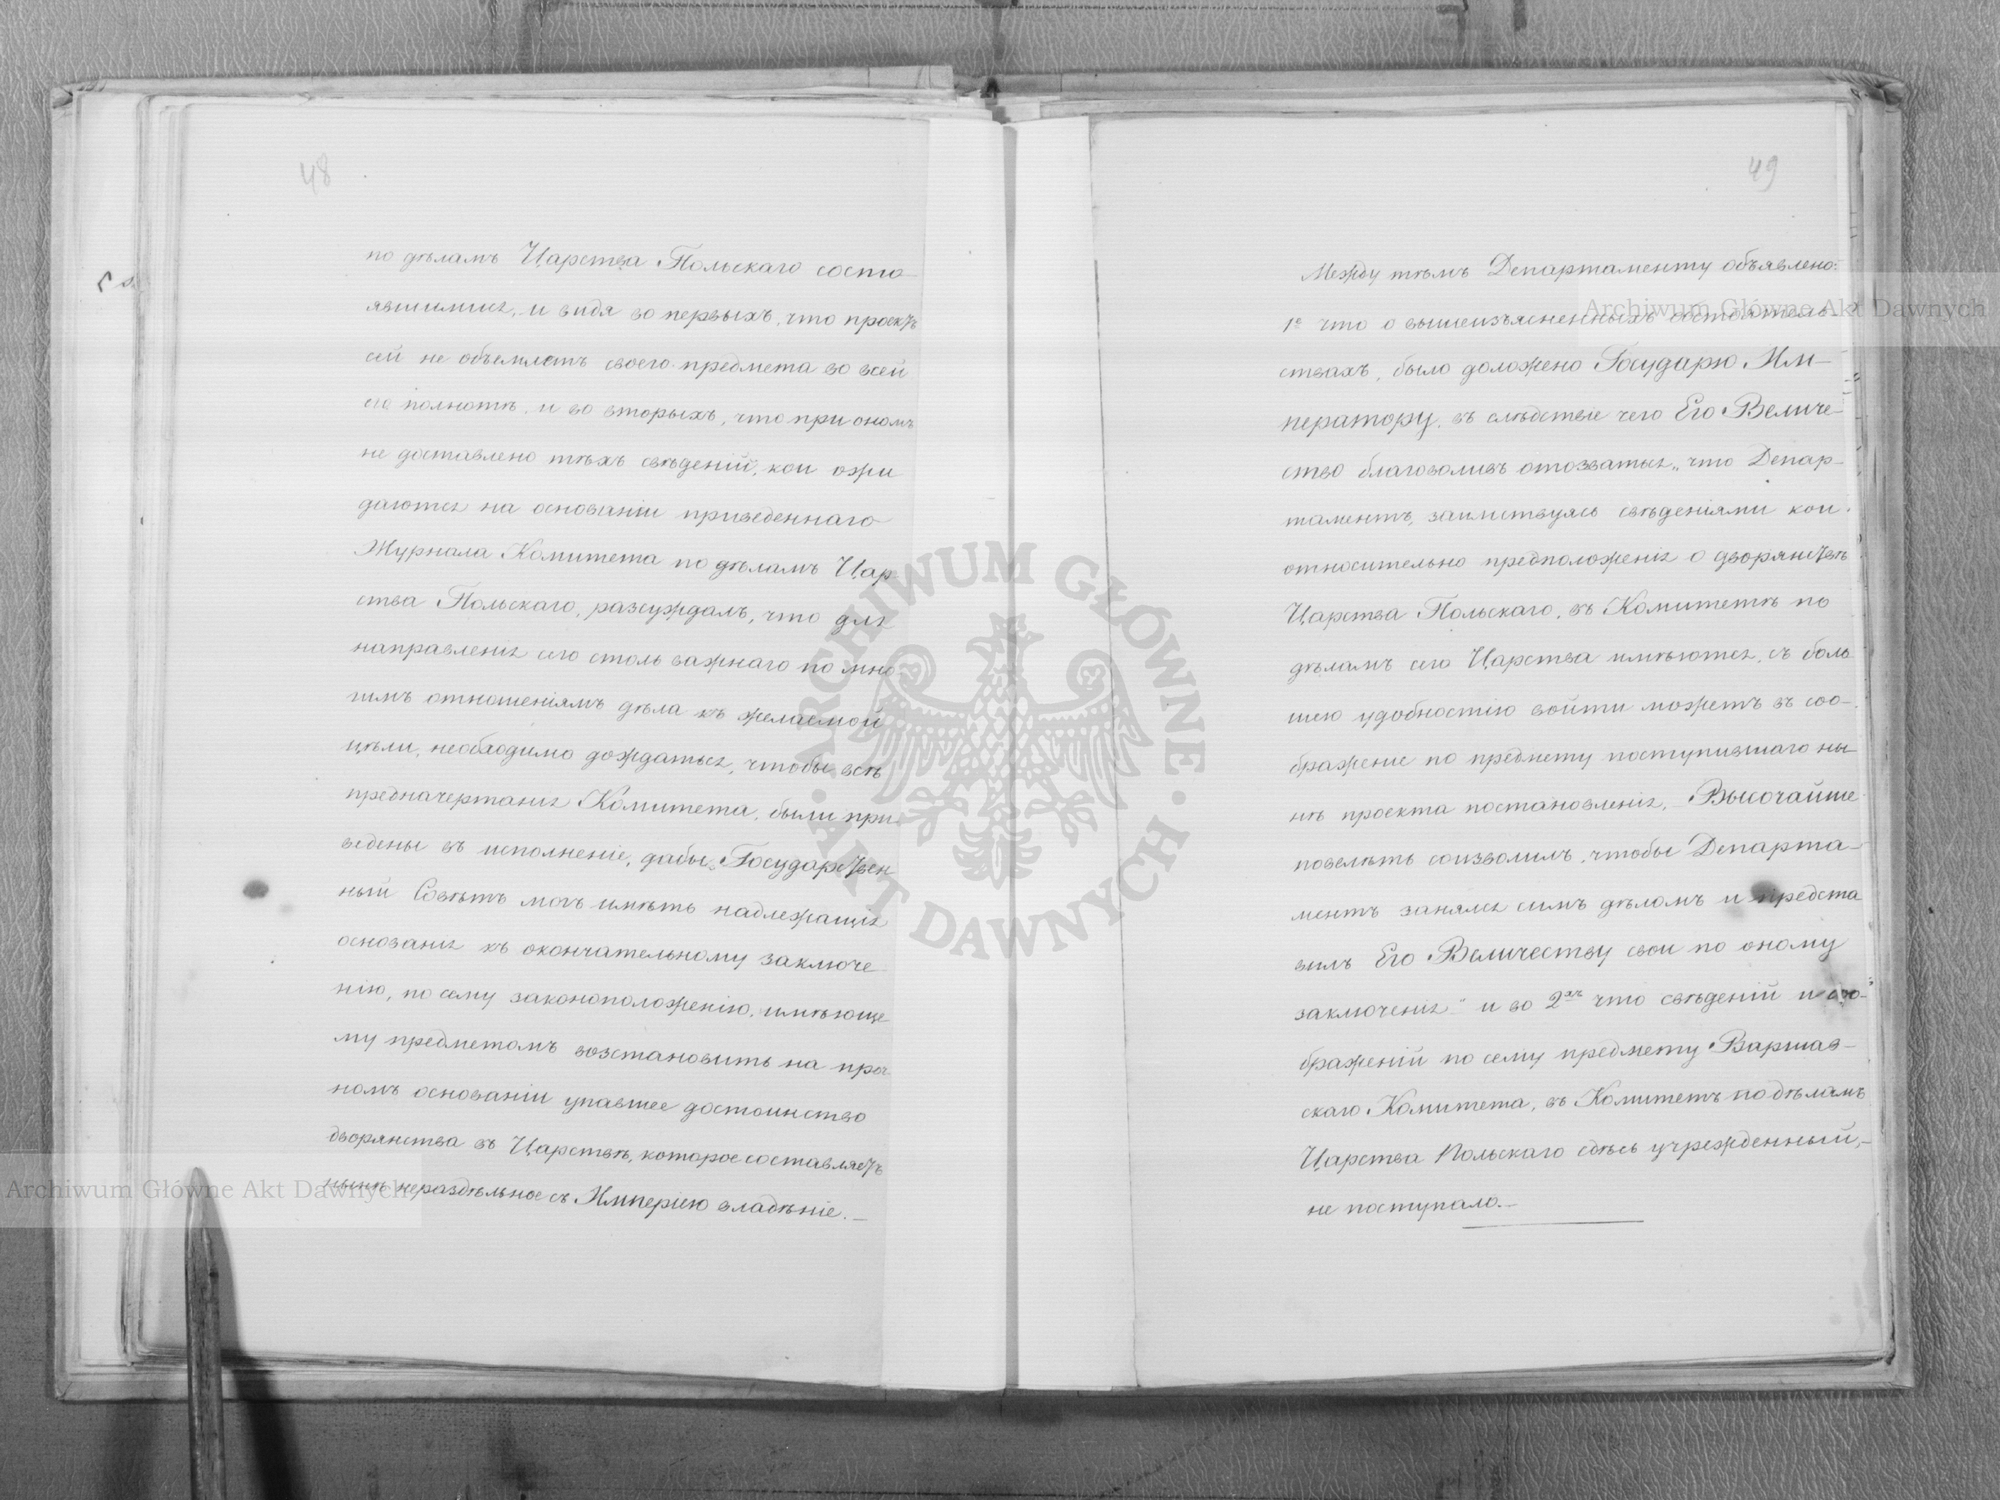 48
по дѣламъ Царства Польскаго состо
явшимися, и видя во первыхъ, что проектъ
сей не объемлетъ своего предмета во всей
его полнотѣ, и во вторыхъ, что при ономъ
не доставлено тѣхъ свѣденій, кои ожи
даются на основаніи приведеннаго
Журнала Комитета по дѣламъ Цар
ства Польскаго, разсуждалъ, что для
направленія сего столь важнаго по мно
гимъ отношеніямъ дѣла къ желаемой
цѣли, необходимо дождаться, чтобы всѣ
предначертанія Комитета, были при
ведены въ исполненіе, дабы Государствен
ный Совѣтъ могъ имѣть надлежащія
основанія къ окончательному заключе
нію, по сему законоположенію, имѣюще
му предметомъ возстановить на проч
номъ основаніи упавшее достоинство
дворянства въ Царствѣ, которое составляетъ
нынѣ нераздѣльное съ Имперіею владѣніе.—
49
Между тѣмъ Департаменту объявлено:
1е что о вышеизъясненныхъ обстоятель-
ствахъ, было доложено Государю Им—
ператору, въ слѣдствіе чего Его Величе—
ство благоволивъ отозваться „что Депар—
таментъ, заимствуясь свѣденіями кои
относительно предположенія о дворянствѣ
Царства Польскаго, въ Комитетѣ по
дѣламъ сего Царства имѣются, съ боль
шею удобностію войти можетъ въ соо—
браженіе по предмету поступившаго ны
нѣ проекта постановленія, — Высочайше
повелѣть соизволилъ, чтобы Департа—
ментъ занялся симъ дѣломъ и предста
вилъ Его Величеству свои по оному
заключенія" и во 2хъ что свѣденій и соо—
браженій по сему предмету Варшав—
скаго Комитета, въ Комитетъ по дѣламъ
Царства Польскаго сдѣсь учрежденный,—
не поступало.—
Archiwum Główne Akt Dawnych
Archiwum Główne Akt Dawnych
ARCHIWUM GŁÓWNE · AKT DAWNYCH ·